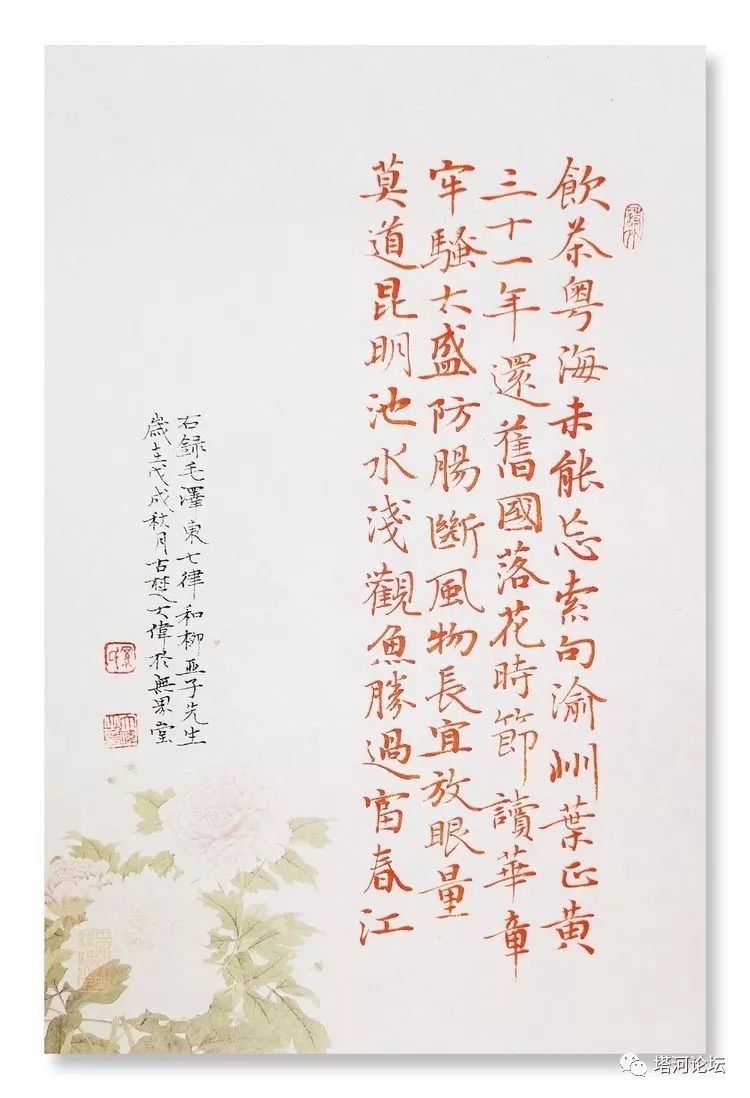 飲茶粵海未能忘索句渝州葉正黃
三十一年還舊國落花時節讀華章
牢騷太盛防腸斷風物長宜放眼量
莫道昆明池水淺觀魚勝過富春江
右錄毛澤東七律和柳亞子先生
歲在戊戌秋月古越大偉於無界堂
塔河论坛